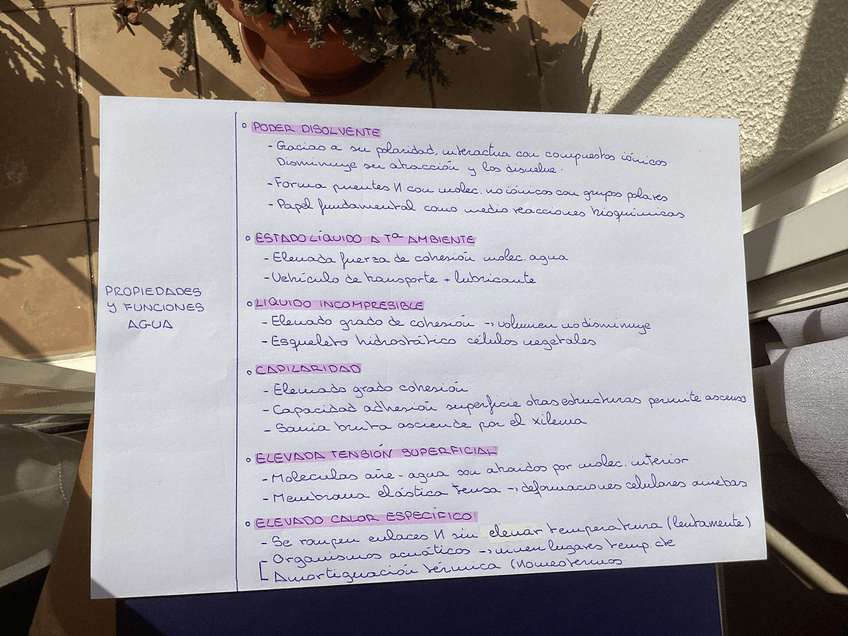 PROPIEDADES
Y FUNCIONES
AGUA
◦ PODER DISOLVENTE
- Gracias a su polaridad, interactua con compuestos iónicos
Disminuye su atracción y los disuelve.
- Forma puentes H con molec. no iónicos con grupos polares
- Papel fundamental como medio reacciones bioquímicas
◦ ESTADO LÍQUIDO A Tª AMBIENTE
- Elevada fuerza de cohesión molec. agua
- Vehículo de transporte + lubricante
◦ LÍQUIDO INCOMPRESIBLE
- Elevado grado de cohesión → volumen no disminuye
- Esqueleto hidrostático células vegetales
◦ CAPILARIDAD
- Elevado grado cohesión
- Capacidad adhesión superficie otras estructuras permite ascenso
- Savia bruta asciende por el xilema
◦ ELEVADA TENSIÓN SUPERFICIAL
- Moleculas aire-agua son atraidos por molec. interior
- Membrana elástica tensa → deformaciones celulares amebas
◦ ELEVADO CALOR ESPECÍFICO
- Se rompen enlaces H sin elevar temperatura (lentamente)
[ - Organismos acuáticos → viven lugares temp. cte
- Amortiguación térmica (homeotermos